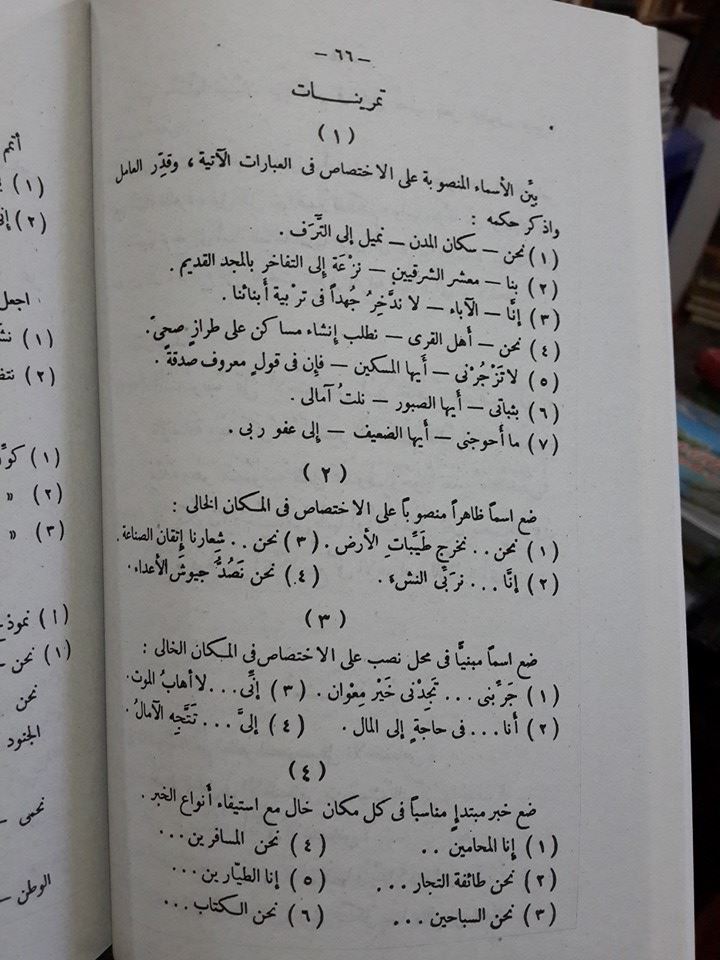 — ٦٦ —
تمرينـــات
( ١ )
بيِّن الأسماء المنصوبة على الاختصاص فى العبارات الآتية ، وقدِّر العامل
واذكر حكمه :
( ١ ) نحن — سكان المدن — نميل إلى التَّرَف .
( ٢ ) بنا — معشر الشرقيين — نزْعَة إلى التفاخر بالمجد القديم .
( ٣ ) إنَّا — الآباء — لا ندَّخِرُ جُهداً فى تربية أبنائنا .
( ٤ ) نحن — أهل القرى — نطلب إنشاء مساكن على طرازٍ صحىّ .
( ٥ ) لا تَزْجُرْنى — أيها المسكين — فإن فى قولٍ معروف صدقةً .
( ٦ ) بثباتى — أيها الصبور — نلتُ آمالى .
( ٧ ) ما أحوجنى — أيها الضعيف — إلى عفو ربى .
( ٢ )
ضع اسماً ظاهراً منصوباً على الاختصاص فى المكان الخالى :
( ١ ) نحن . . نخرج طَيِّباتِ الأرض . ( ٣ ) نحن . . شِعارنا إتقان الصناعة .
( ٢ ) إنَّا . . . نربِّى النشء . ( ٤ ) نحن نَصُدُّ جيوشَ الأعداء .
( ٣ )
ضع اسماً مبنيًّا فى محل نصب على الاختصاص فى المكان الخالى :
( ١ ) جَرِّبنى . . . تَجِدْنى خَيْر مِعْوان . ( ٣ ) إنِّى . . . لا أهابُ الموت .
( ٢ ) أنا . . . فى حاجةٍ إلى المال . ( ٤ ) إلىَّ . . . تَتَّجِه الآمالُ .
( ٤ )
ضع خبر مبتدإٍ مناسباً فى كل مكان خال مع استيفاء أنواع الخبر .
( ١ ) إنا المحامين . . ( ٤ ) نحن المسافرين . . .
( ٢ ) نحن طائفة التجار . . . ( ٥ ) إنا الطيّارين . . .
( ٣ ) نحن السباحين . . . ( ٦ ) نحن الكتاب . . .
أنتم
( ١ )
( ٢ )
اجعل
( ١ )
( ٢ )
( ١ )
( ٢ ) »
( ٣ ) »
( ١ ) نحن
نحن
الجنود
نحمى —
الوطن —